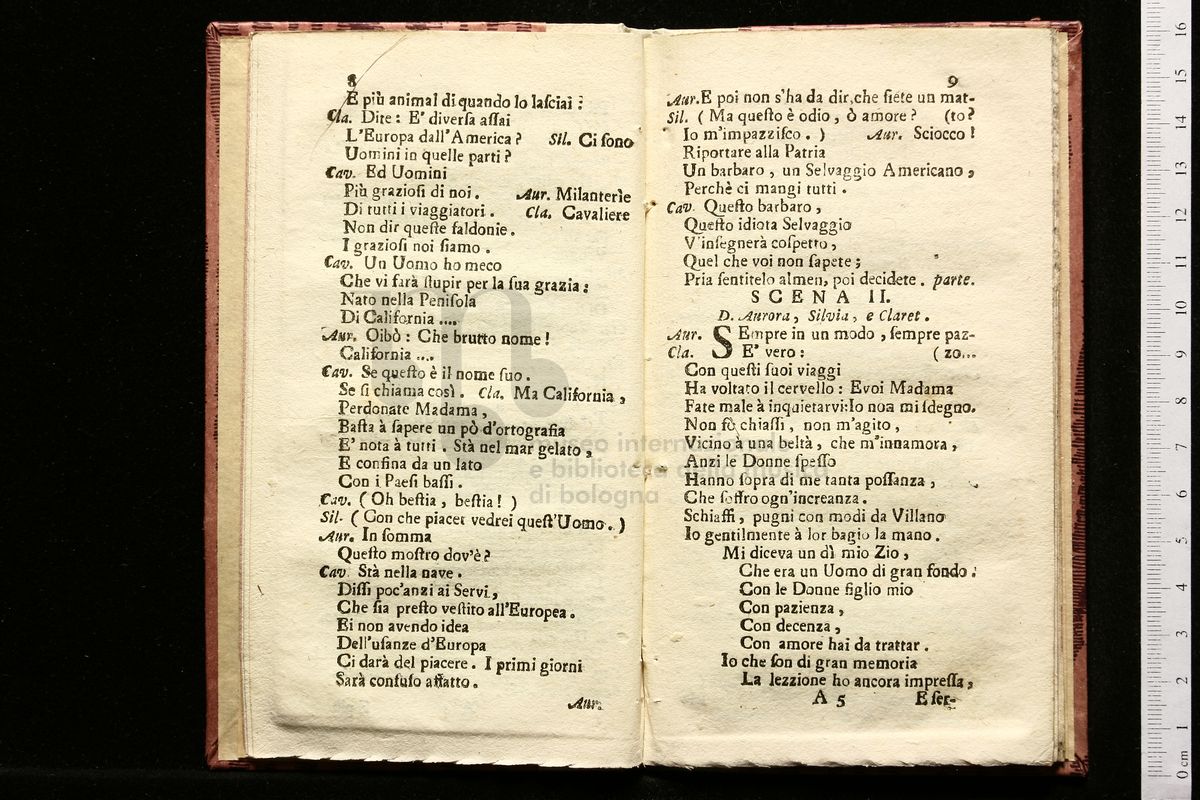 8
E più animal di quando lo laſciai?
Cla. Dite: E' diverſa aſſai
L'Europa dall'America? Sil. Ci ſono
Uomini in quelle parti?
Cav. Ed Uomini
Più grazioſi di noi. Aur. Milanterìe
Di tutti i viaggiatori. Cla. Cavaliere
Non dir queſte faldonie.
I grazioſi noi ſiamo.
Cav. Un Uomo ho meco
Che vi farà ſtupir per la ſua grazia:
Nato nella Peniſola
Di California ....
Aur. Oibò: Che brutto nome!
California ....
Cav. Se queſto è il nome ſuo.
Se ſi chiama così. Cla. Ma California,
Perdonate Madama,
Baſta à ſapere un pò d'ortografia
E' nota à tutti. Stà nel mar gelato,
E confina da un lato
Con i Paeſi baſſi.
Cav. (Oh beſtia, beſtia!)
Sil. (Con che piacer vedrei queſt'Uomo.)
Aur. In ſomma
Queſto moſtro dov'è?
Cav. Stà nella nave.
Diſſi poc'anzi ai Servi,
Che ſia preſto veſtito all'Europea.
Ei non avendo idea
Dell'uſanze d'Europa
Ci darà del piacere. I primi giorni
Sarà confuſo affatto.
Aur.
9
Aur. E poi non s'ha da dir, che ſiete un mat-
Sil. (Ma queſto è odio, ò amore? (to?
Io m'impazziſco.) Aur. Sciocco!
Riportare alla Patria
Un barbaro, un Selvaggio Americano,
Perchè ci mangi tutti.
Cav. Queſto barbaro,
Queſto idiota Selvaggio
V'inſegnerà coſpetto,
Quel che voi non ſapete;
Pria ſentitelo almen, poi decidete. parte.
SCENA II.
D. Aurora, Silvia, e Claret.
Aur. SEmpre in un modo, ſempre paz-
Cla. E' vero: (zo...
Con queſti ſuoi viaggi
Ha voltato il cervello: E voi Madama
Fate male à inquietarvi: Io non mi ſdegno.
Non fò chiaſſi, non m'agito,
Vicino à una beltà, che m'innamora,
Anzi le Donne ſpeſſo
Hanno ſopra di me tanta poſſanza,
Che ſoffro ogn'increanza.
Schiaffi, pugni con modi da Villano
Io gentilmente à lor bagio la mano.
Mi diceva un dì mio Zio,
Che era un Uomo di gran fondo:
Con le Donne figlio mio
Con pazienza,
Con decenza,
Con amore hai da trattar.
Io che ſon di gran memoria
La lezzione ho ancora impreſſa,
A 5 E ſer-
museo internazionale
e biblioteca della musica
di bologna
16
15
14
13
12
11
10
9
8
7
6
5
4
3
2
1
0 cm